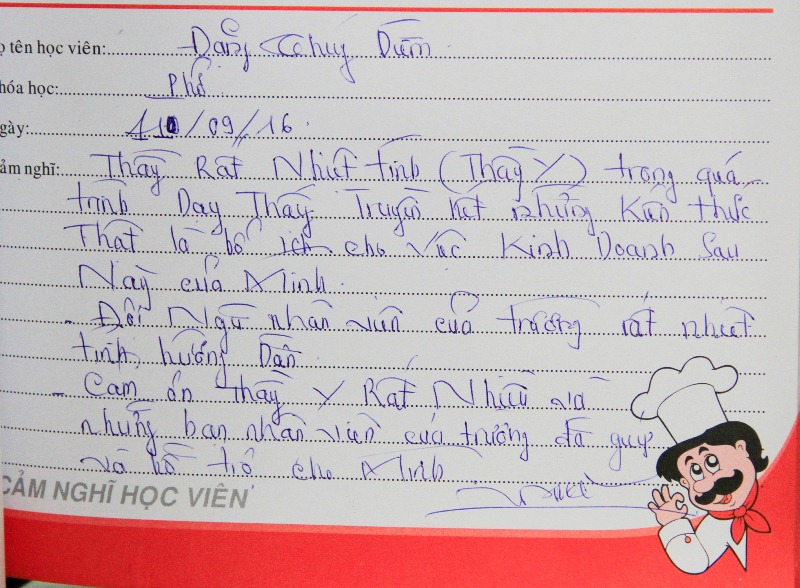 ọ tên học viên: Đặng Thúy Diễm
hóa học: Phở
gày: 110/09/16.
ảm nghĩ: Thầy Rất Nhiệt tình (Thầy Y) trong quá
trình Dạy Thầy Truyền hết những Kiến thức
Thật là bổ ích cho Việc Kinh Doanh Sau
Này của Mình.
- Đội Ngũ nhân viên của trường rất nhiệt
tình, hướng Dẫn
- Cảm ơn thầy Y Rất Nhiều và
những bạn nhân viên của trường đã giúp
và hỗ trợ cho Mình
CẢM NGHĨ HỌC VIÊN